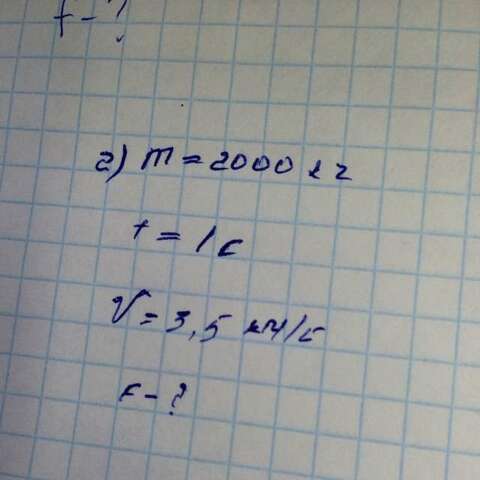 f-?
2) m = 2000 кг
t = 1 c
V = 3,5 км/c
F-?